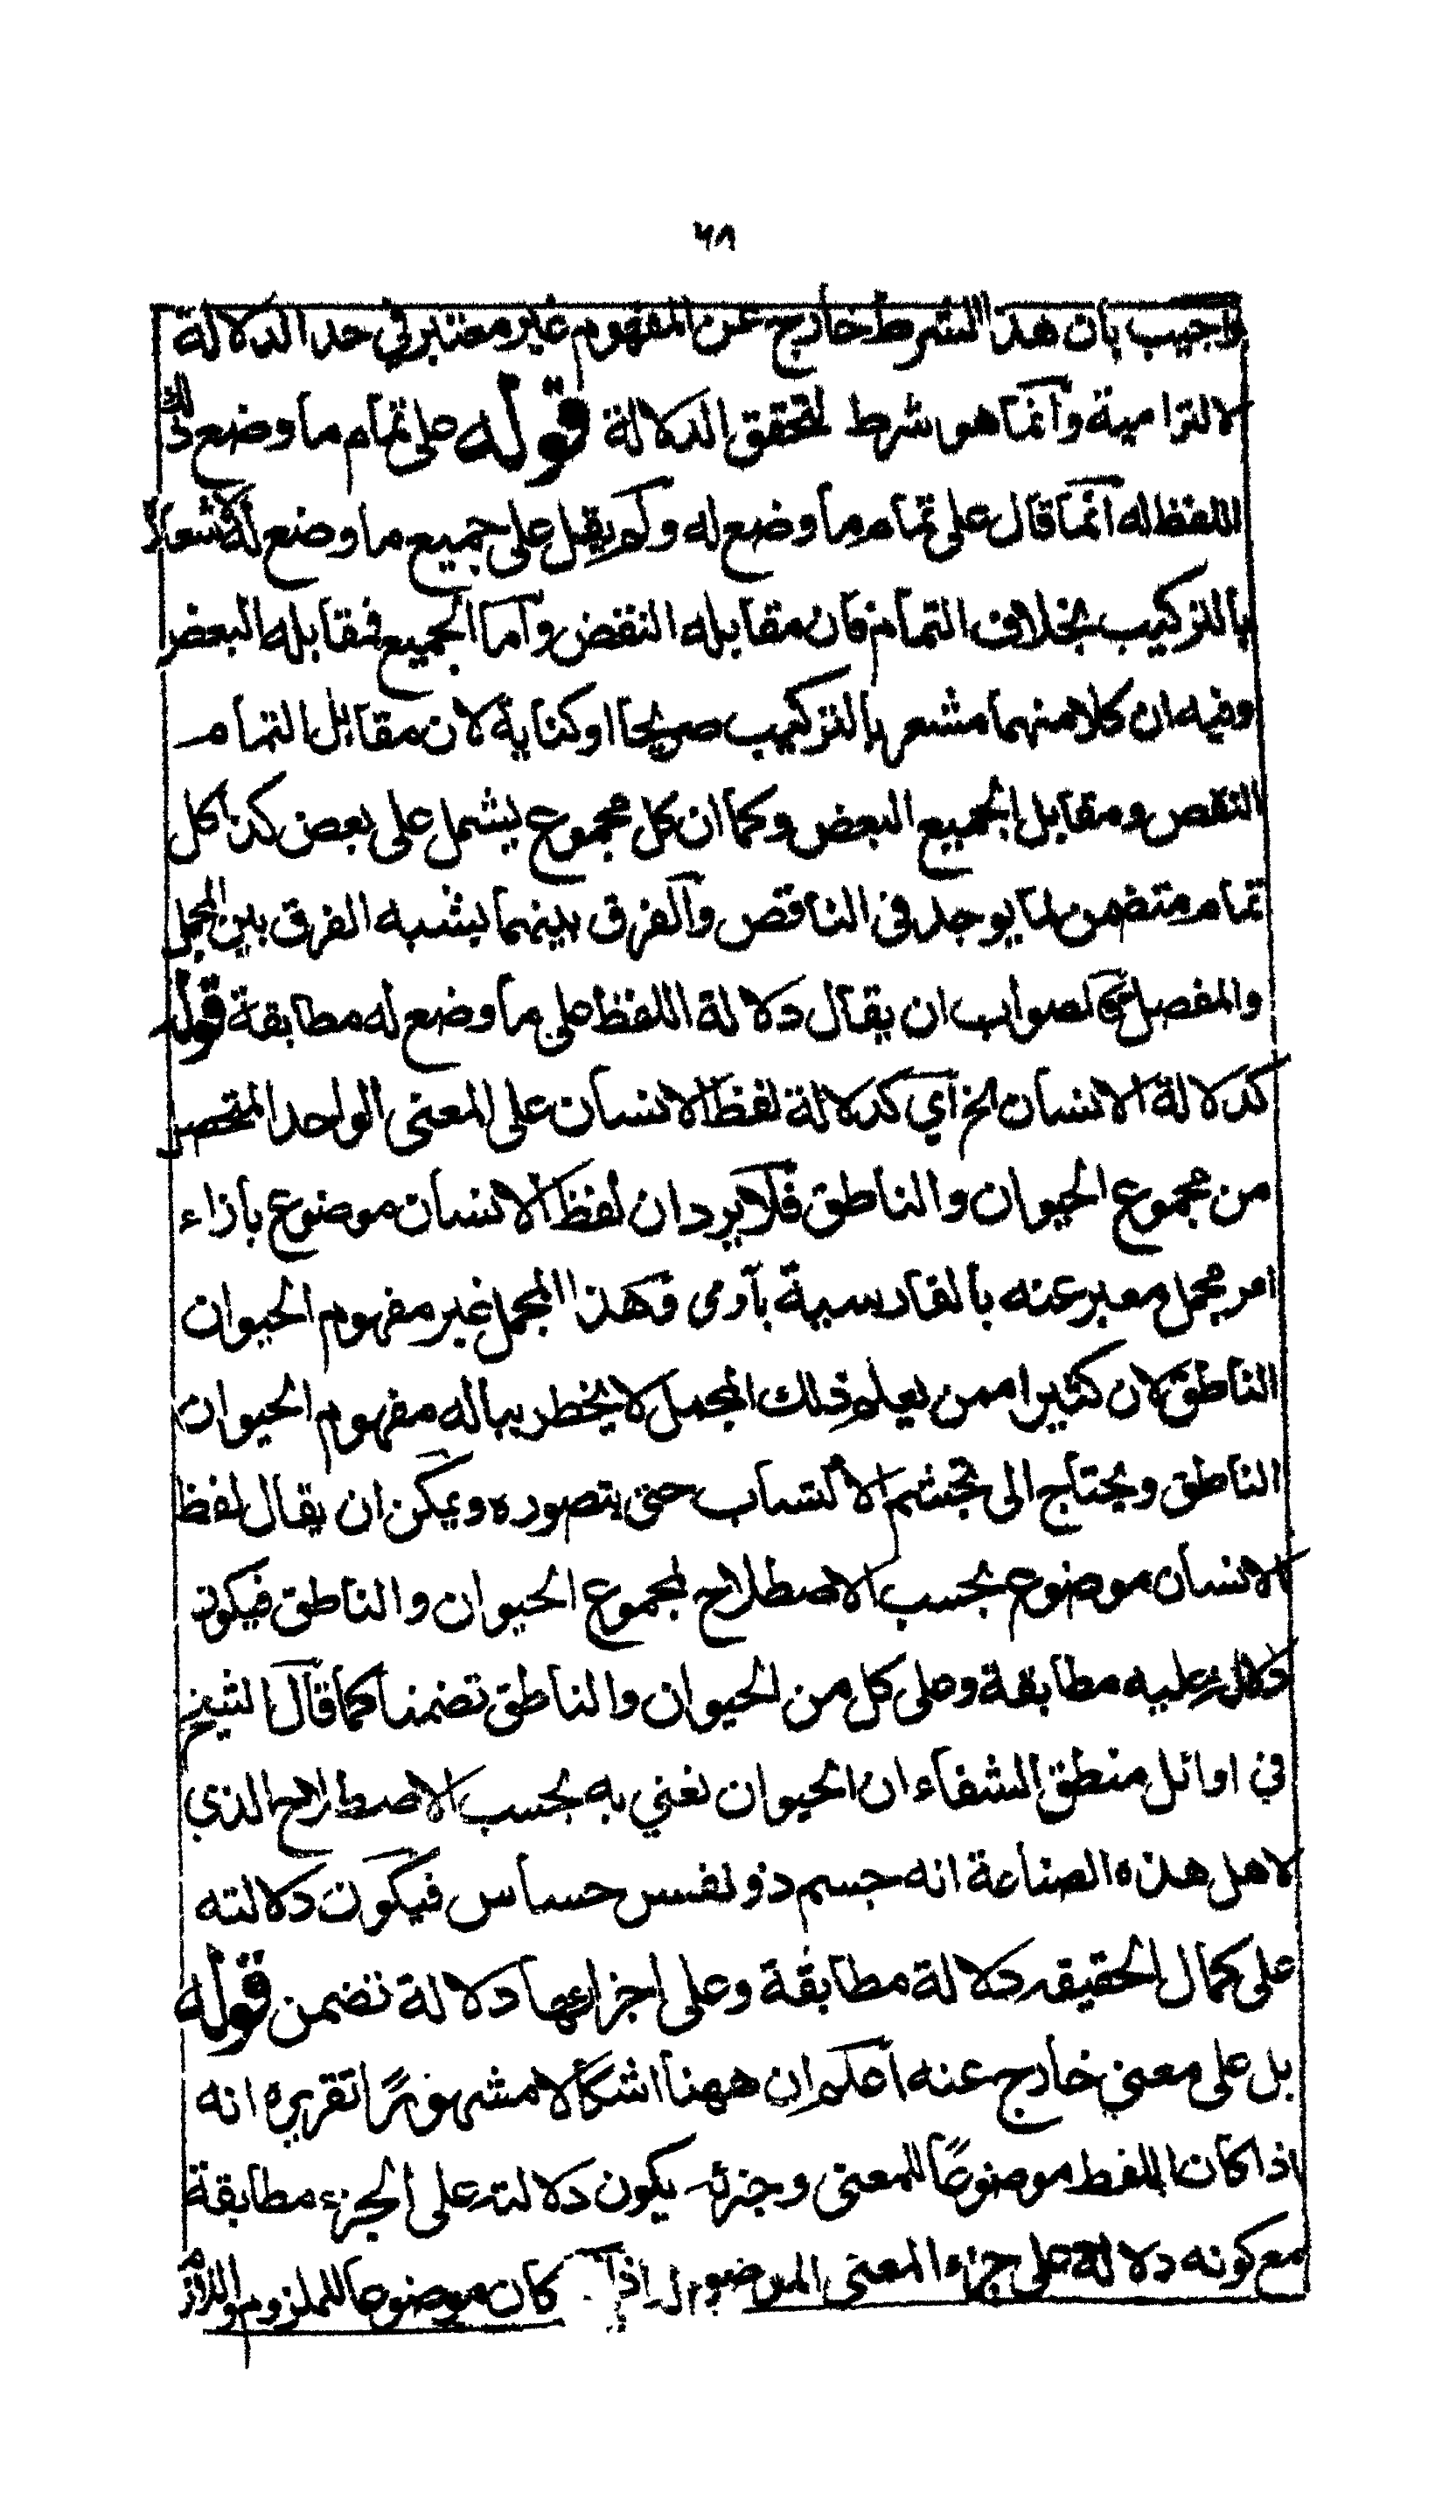 ٦٨
واجيب بان هذا الشرط خارج عن المفهوم غير معتبر في حد الدلالة
الالتزامية وانما هو شرط لتحقق الدلالة قوله على تمام ما وضع ذلك
اللفظ له انما قال على تمام ما وضع له ولم يقل على جميع ما وضع له لاشعاره
بالتركيب بخلاف التمام فان مقابله النقض واما الجميع فمقابله البعض
وفيه ان كلا منهما مشعر بالتركيب صريحا او كناية لان مقابل التمام
النقص ومقابل الجميع البعض وكما ان كل مجموع يشمل على بعض كذا كل
تمام متضمن لما يوجد في الناقص والفرق بينهما يشبه الفرق بين المجمل
والمفصل الصواب ان يقال دلالة اللفظ على ما وضع له مطابقة قوله
كدلالة الانسان الخ اي كدلالة لفظ الانسان على المعنى الواحد المتحصر
من مجموع الحيوان والناطق فلا يرد ان لفظ الانسان موضوع بازاء
امر مجمل معبر عنه بالفارسية بآدمى وهذا المجمل غير مفهوم الحيوان
الناطق لان كثيرا ممن يعلم ذلك المجمل لا يخطر بباله مفهوم الحيوان
الناطق ويحتاج الى تجشم الاكتساب حتى يتصوره ويمكن ان يقال لفظ
الانسان موضوع بحسب الاصطلاح لمجموع الحيوان والناطق فيكون
دلالته عليه مطابقة وعلى كل من الحيوان والناطق تضمنا كما قال الشيخ
في اوائل منطق الشفاء ان الحيوان نعني به بحسب الاصطلاح الذي
لاهل هذه الصناعة انه جسم ذو نفس حساس فيكون دلالته
على كمال الحقيقه دلالة مطابقة وعلى اجزائها دلالة تضمن قوله
بل على معنى خارج عنه اعلم ان ههنا اشكالا مشهورًا تقريره انه
اذا كان اللفظ موضوعًا للمعنى وجزئه يكون دلالته على الجزء مطابقة
مع كونه دلالة على جزء المعنى الموضوع له اذا كان موضوعا للملزوم واللازم